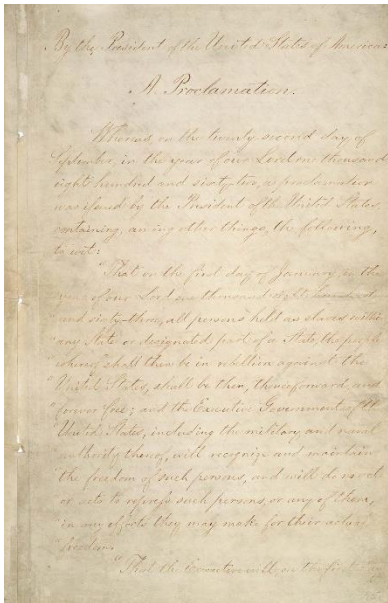 By the President of the United States of America:
A Proclamation.
Whereas, on the twenty-second day of
September, in the year of our Lord one thousand
eight hundred and sixty-two, a proclamation
was issued by the President of the United States,
containing, among other things, the following,
to wit:
"That on the first day of January, in the
year of our Lord one thousand eight hundred
and sixty-three, all persons held as slaves within
"any State or designated part of a State, the people
"whereof shall then be in rebellion against the
"United States, shall be then, thenceforward, and
"forever free; and the Executive Government of the
"United States, including the military and naval
"authority thereof, will recognize and maintain
"the freedom of such persons, and will do no act
"or acts to repress such persons, or any of them,
"in any efforts they may make for their actual
"freedom.
"That the Executive will, on the first day